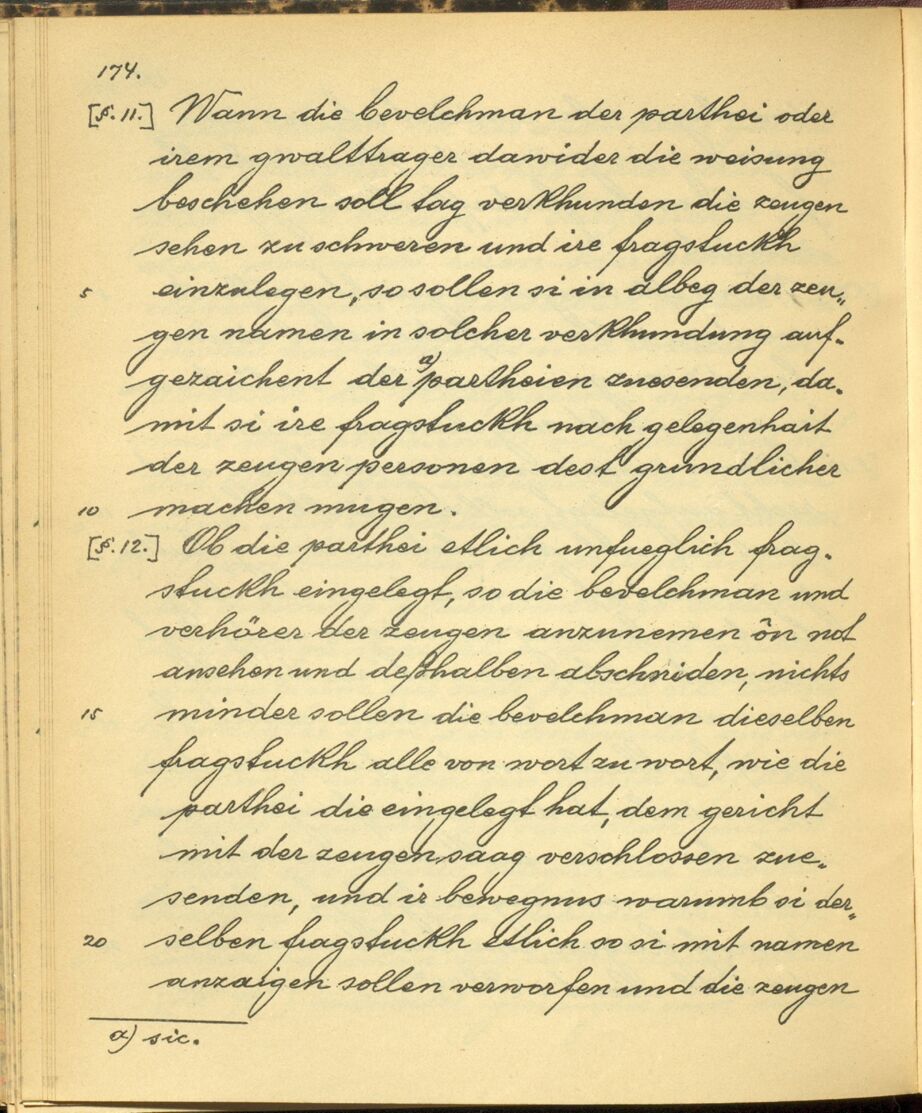 174.
[§. 11.] Wann die bevelchman der parthei oder
irem gwalttrager dawider die weisung
beschehen soll tag verkhunden die zeugen
sehen zu schweren und ire fragstuckh
5 einzulegen, so sollen si in albeg der zeu„
gen namen in solcher verkhundung auf-
gezaichent der a) partheien zuesenden, da-
mit si ire fragstuckh nach gelegenhait
der zeugen personen dest grundlicher
10 machen mugen.
[§. 12.] Ob die parthei etlich unfueglich frag-
stuckh eingelegt, so die bevelchman und
verhörer der zeugen anzunemen ôn not
ansehen und deßhalben abschniden, nichts
15 minder sollen die bevelchman dieselben
fragstuckh alle von wort zu wort, wie die
parthei die eingelegt hat, dem gericht
mit der zeugen saag verschlossen zue„
senden, und ir bewegnus warumb si der„
20 selben fragstuckh etlich so si mit namen
anzaigen sollen verworfen und die zeugen
a) sic.